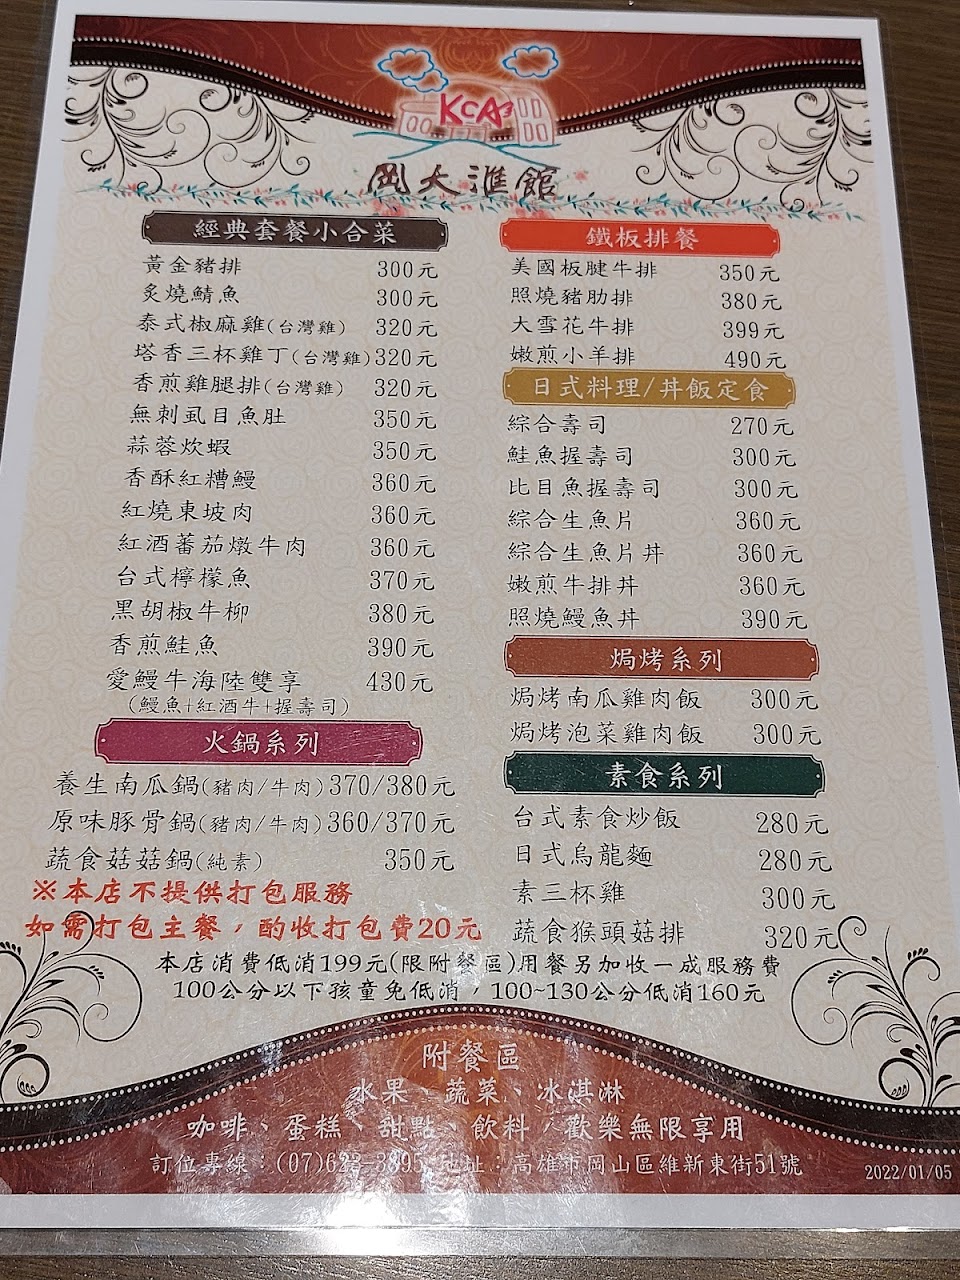 KCA
岡大滙館
經典套餐小合菜
黃金豬排 300元
炙燒鯖魚 300元
泰式椒麻雞(台灣雞) 320元
塔香三杯雞丁(台灣雞) 320元
香煎雞腿排(台灣雞) 320元
無刺虱目魚肚 350元
蒜蓉炊蝦 350元
香酥紅糟鰻 360元
紅燒東坡肉 360元
紅酒蕃茄燉牛肉 360元
台式檸檬魚 370元
黑胡椒牛柳 380元
香煎鮭魚 390元
愛鰻牛海陸雙享 430元
(鰻魚+紅酒牛+握壽司)
火鍋系列
養生南瓜鍋(豬肉/牛肉)370/380元
原味豚骨鍋(豬肉/牛肉)360/370元
蔬食菇菇鍋(純素) 350元
鐵板排餐
美國板腱牛排 350元
照燒豬肋排 380元
大雪花牛排 399元
嫩煎小羊排 490元
日式料理/丼飯定食
綜合壽司 270元
鮭魚握壽司 300元
比目魚握壽司 300元
綜合生魚片 360元
綜合生魚片丼 360元
嫩煎牛排丼 360元
照燒鰻魚丼 390元
焗烤系列
焗烤南瓜雞肉飯 300元
焗烤泡菜雞肉飯 300元
素食系列
台式素食炒飯 280元
日式烏龍麵 280元
素三杯雞 300元
蔬食猴頭菇排 320元
※本店不提供打包服務
如需打包主餐，酌收打包費20元
本店消費低消199元(限附餐區)用餐另加收一成服務費
100公分以下孩童免低消，100~130公分低消160元
附餐區
水果、蔬菜、冰淇淋
咖啡、蛋糕、甜點、飲料，歡樂無限享用
訂位專線：(07)623-3895 地址：高雄市岡山區維新東街51號
2022/01/05